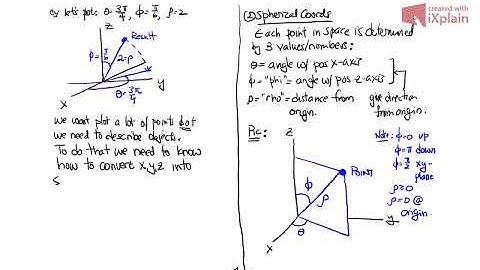 ex let's plot θ=3π/4, φ=π/6, ρ=2
z
Result
φ=π/6
2=ρ
y
θ=3π/4
x
we won't plot a lot of points but
we need to describe objects.
To do that we need to know
how to convert x,y,z into
s
① Spherical Coords
Each point in space is determined
by 3 values/numbers:
θ = angle w/ pos x-axis
φ = "phi" = angle w/ pos z-axis
ρ = "rho" = distance from
origin.
give direction
from origin.
Pic:
z
POINT
φ
ρ
y
θ
x
Note: φ=0 up
φ=π down
φ=π/2 xy-
plane
ρ≥0
ρ=0 @
origin.
created with
iXplain